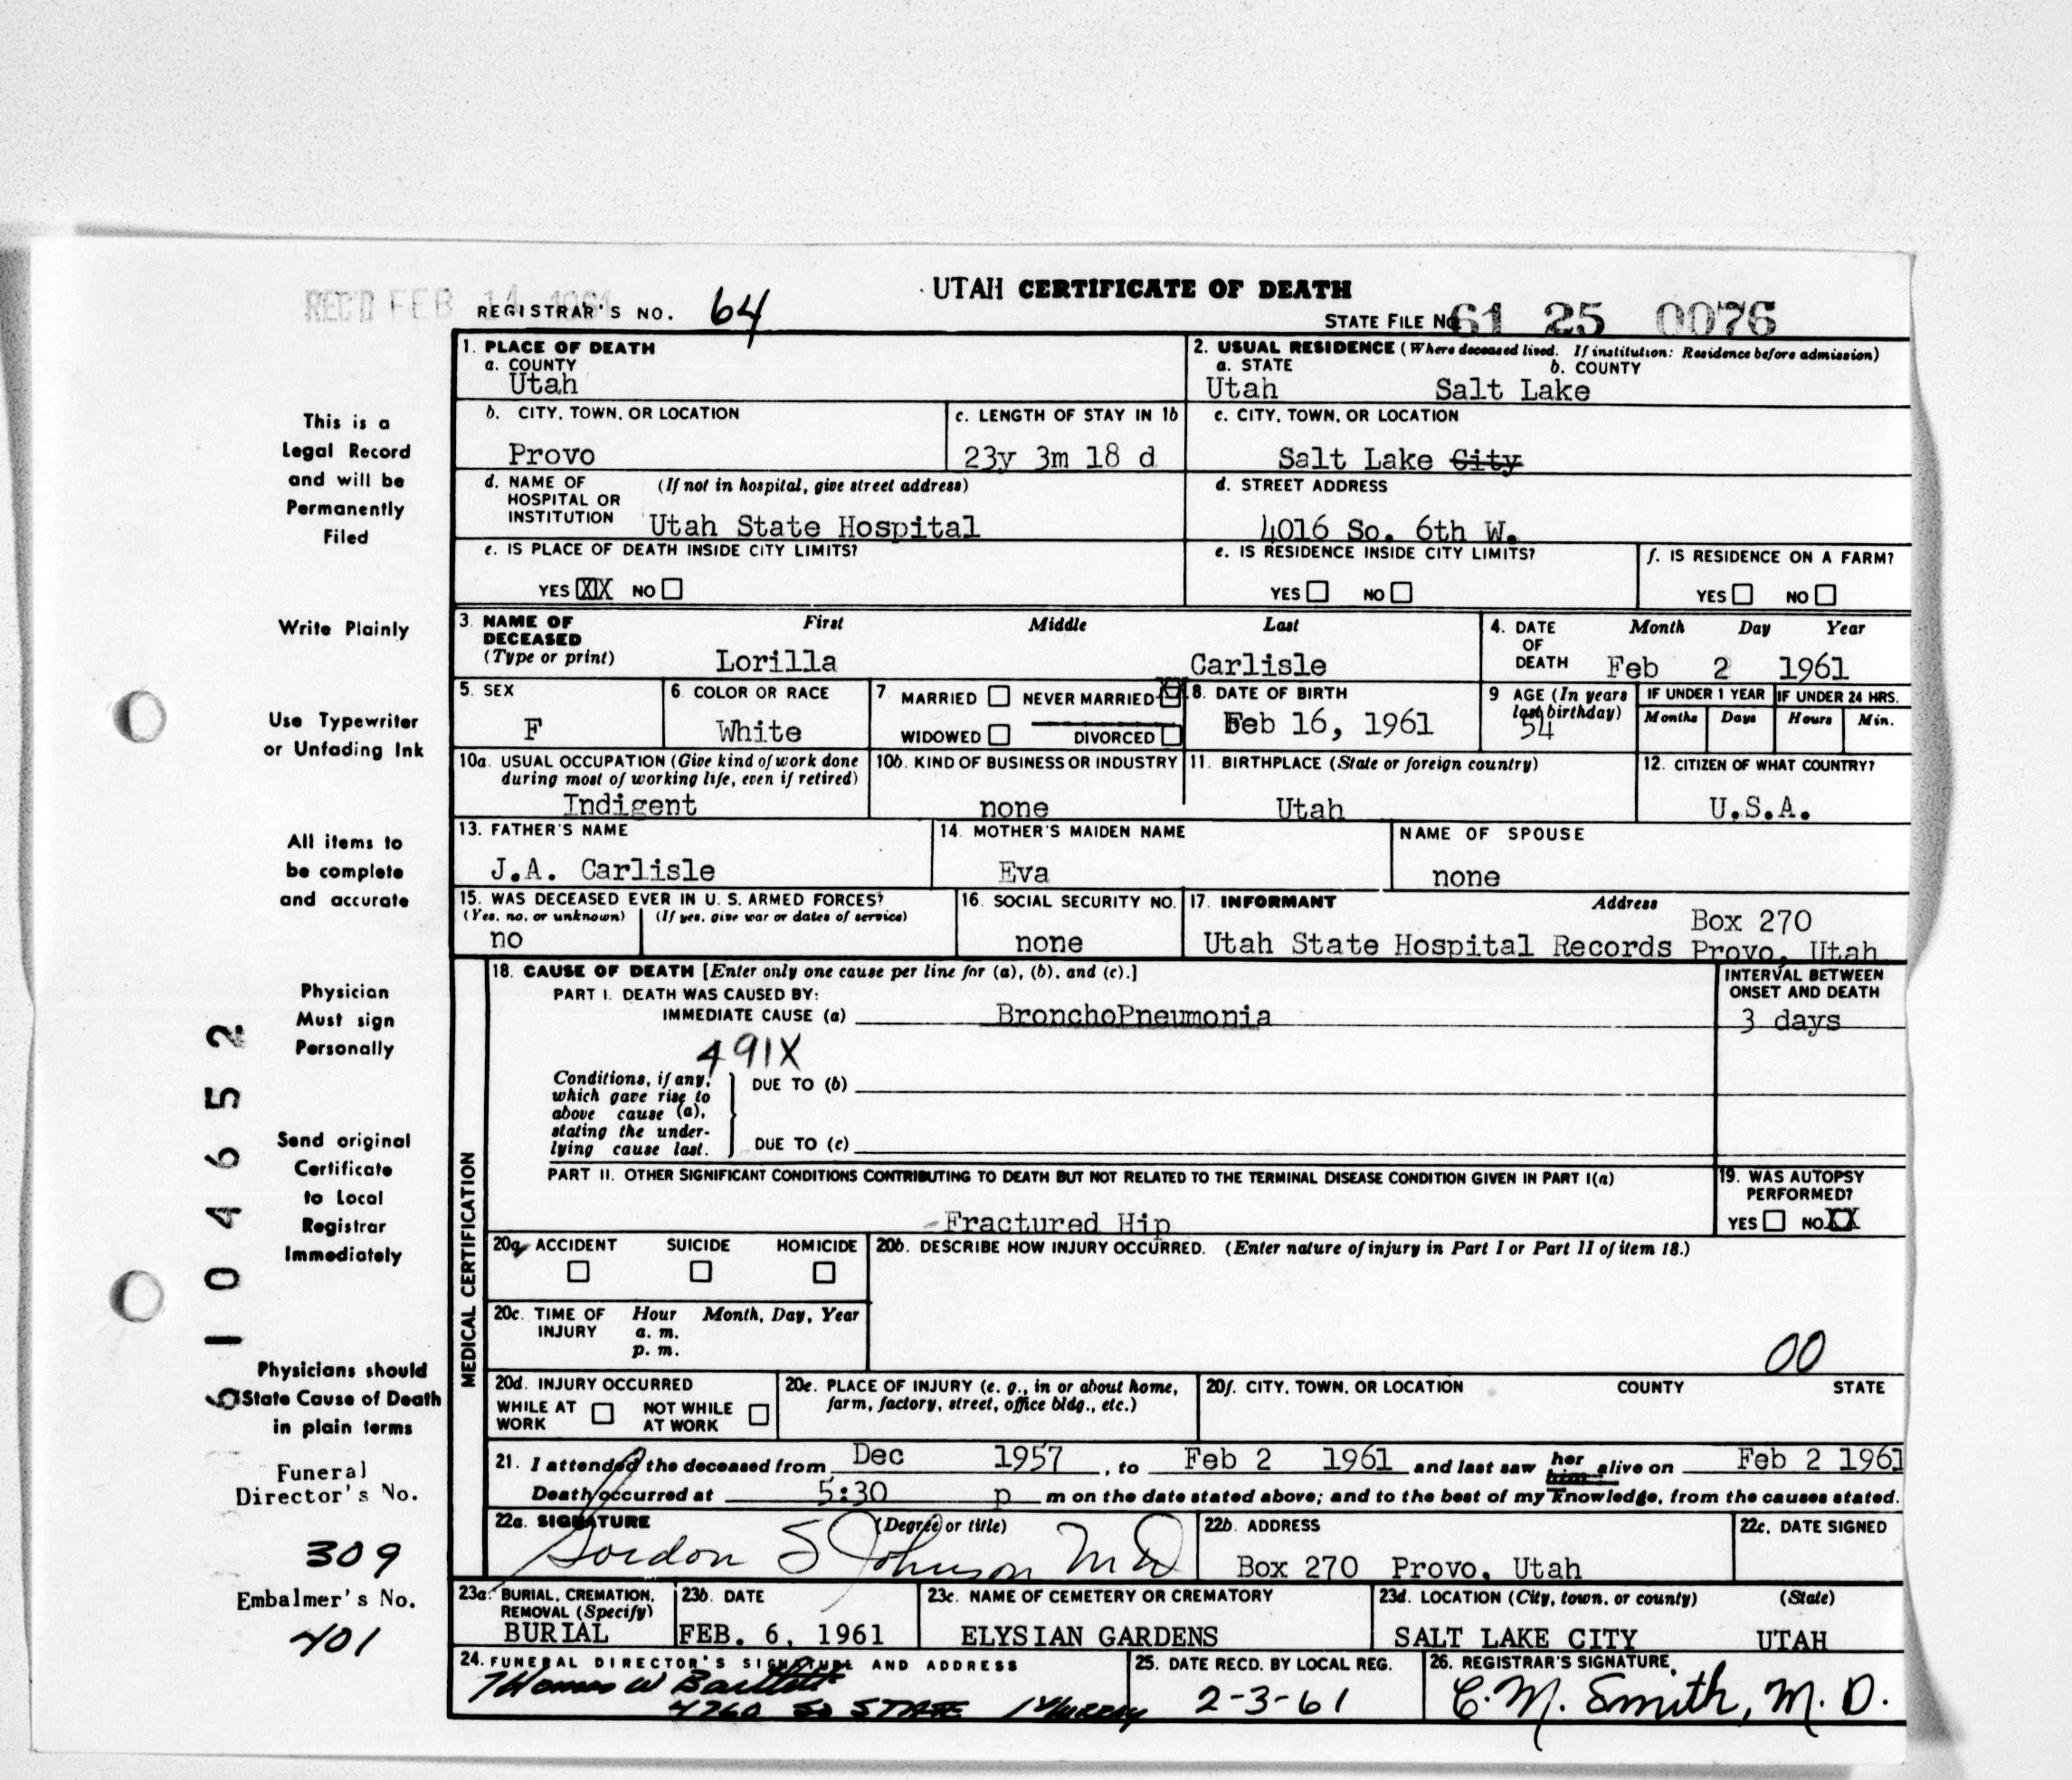 REC'D FEB 14 1961
UTAH CERTIFICATE OF DEATH
REGISTRAR'S NO. 64
STATE FILE No 61 25 0076
1. PLACE OF DEATH
a. COUNTY
Utah
2. USUAL RESIDENCE (Where deceased lived. If institution: Residence before admission)
a. STATE b. COUNTY
Utah Salt Lake
b. CITY, TOWN, OR LOCATION
Provo
c. LENGTH OF STAY IN 1b
23y 3m 18 d
c. CITY, TOWN, OR LOCATION
Salt Lake City
d. NAME OF (If not in hospital, give street address)
HOSPITAL OR
INSTITUTION Utah State Hospital
d. STREET ADDRESS
4016 So. 6th W.
e. IS PLACE OF DEATH INSIDE CITY LIMITS?
YES XX NO
e. IS RESIDENCE INSIDE CITY LIMITS?
YES NO
f. IS RESIDENCE ON A FARM?
YES NO
3. NAME OF First Middle Last
DECEASED
(Type or print) Lorilla Carlisle
4. DATE Month Day Year
OF
DEATH Feb 2 1961
5. SEX
F
6. COLOR OR RACE
White
7. MARRIED NEVER MARRIED X
WIDOWED DIVORCED
8. DATE OF BIRTH
Feb 16, 1961
9 AGE (In years
last birthday)
54
IF UNDER 1 YEAR IF UNDER 24 HRS.
Months Days Hours Min.
10a. USUAL OCCUPATION (Give kind of work done
during most of working life, even if retired)
Indigent
10b. KIND OF BUSINESS OR INDUSTRY
none
11. BIRTHPLACE (State or foreign country)
Utah
12. CITIZEN OF WHAT COUNTRY?
U.S.A.
13. FATHER'S NAME
J.A. Carlisle
14. MOTHER'S MAIDEN NAME
Eva
NAME OF SPOUSE
none
15. WAS DECEASED EVER IN U. S. ARMED FORCES?
(Yes, no, or unknown) (If yes, give war or dates of service)
no
16. SOCIAL SECURITY NO.
none
17. INFORMANT Address
Box 270
Utah State Hospital Records Provo, Utah
MEDICAL CERTIFICATION
18. CAUSE OF DEATH [Enter only one cause per line for (a), (b), and (c).]
INTERVAL BETWEEN
ONSET AND DEATH
PART I. DEATH WAS CAUSED BY:
IMMEDIATE CAUSE (a) BronchoPneumonia
3 days
491X
Conditions, if any,
which gave rise to
above cause (a),
stating the under-
lying cause last.
DUE TO (b)
DUE TO (c)
PART II. OTHER SIGNIFICANT CONDITIONS CONTRIBUTING TO DEATH BUT NOT RELATED TO THE TERMINAL DISEASE CONDITION GIVEN IN PART I(a)
Fractured Hip
19. WAS AUTOPSY
PERFORMED?
YES NO XX
20a. ACCIDENT SUICIDE HOMICIDE
20b. DESCRIBE HOW INJURY OCCURRED. (Enter nature of injury in Part I or Part II of item 18.)
20c. TIME OF Hour Month, Day, Year
INJURY a. m.
p. m.
00
20d. INJURY OCCURRED
WHILE AT NOT WHILE
WORK AT WORK
20e. PLACE OF INJURY (e. g., in or about home,
farm, factory, street, office bldg., etc.)
20f. CITY, TOWN, OR LOCATION COUNTY STATE
21. I attended the deceased from Dec 1957, to Feb 2 1961 and last saw her him alive on Feb 2 1961
Death occurred at 5:30 p m on the date stated above; and to the best of my knowledge, from the causes stated.
22a. SIGNATURE (Degree or title)
Gordon S Johnson M D
22b. ADDRESS
Box 270 Provo, Utah
22c. DATE SIGNED
23a. BURIAL, CREMATION,
REMOVAL (Specify)
BURIAL
23b. DATE
FEB. 6, 1961
23c. NAME OF CEMETERY OR CREMATORY
ELYSIAN GARDENS
23d. LOCATION (City, town, or county) (State)
SALT LAKE CITY UTAH
24. FUNERAL DIRECTOR'S SIGNATURE AND ADDRESS
Thomas W Bartlett
4760 So STATE Murray
25. DATE RECD. BY LOCAL REG.
2-3-61
26. REGISTRAR'S SIGNATURE,
C. M. Smith, M. D.
This is a
Legal Record
and will be
Permanently
Filed
Write Plainly
Use Typewriter
or Unfading Ink
All items to
be complete
and accurate
Physician
Must sign
Personally
Send original
Certificate
to Local
Registrar
Immediately
Physicians should
State Cause of Death
in plain terms
Funeral
Director's No.
309
Embalmer's No.
401
6104652